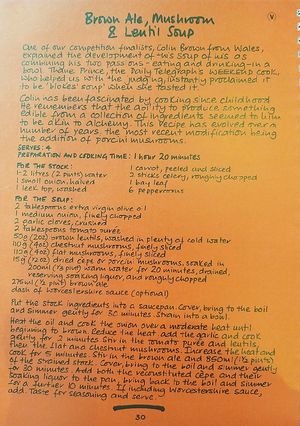 Brown Ale, Mushroom
& Lentil Soup
V
One of our competition finalists, Colin Brown from Wales,
explained the development of this soup to us as
combining his two passions - eating and drinking - in a
bowl. Thane Prince, the Daily Telegraph's WEEKEND cook,
who helped us with the judging, instantly proclaimed it
to be 'blokes' soup' when she tasted it.
Colin has been fascinated by cooking since childhood
He remembers that the ability to produce something
edible from a collection of ingredients seemed to him
to be akin to alchemy. This recipe has evolved over a
number of years, the most recent modification being
the addition of porcini mushrooms.
SERVES: 4
PREPARATION AND COOKING TIME: 1 hour 20 minutes
FOR THE STOCK:
1·2 litres (2 pints) water
1 small onion, halved
1 leek top, washed
1 carrot, peeled and sliced
2 sticks celery, roughly chopped
1 bay leaf
6 peppercorns
FOR THE SOUP:
2 tablespoons extra virgin olive oil
1 medium onion, finely chopped
2 garlic cloves, crushed
2 tablespoons tomato purée
50g (2oz) brown lentils, washed in plenty of cold water
110g (4oz) chestnut mushrooms, finely sliced
110g (4oz) flat mushrooms, finely sliced
15g (½oz) dried cepe or porcini mushrooms, soaked in
200ml (⅓ pint) warm water for 20 minutes, drained,
reserving soaking liquor, and roughly chopped
275ml (½ pint) brown ale
dash of Worcestershire sauce (optional)
Put the stock ingredients into a saucepan. Cover, bring to the boil
and simmer gently for 30 minutes. Strain into a bowl.
Heat the oil and cook the onion over a moderate heat until
beginning to brown. Reduce the heat, add the garlic and cook
gently for 2 minutes. Stir in the tomato purée and lentils,
then the flat and chestnut mushrooms. Increase the heat and
cook for 5 minutes. Stir in the brown ale and 850ml (1½ pints)
of the strained stock. Cover, bring to the boil and simmer gently
for 30 minutes. Add both the reconstituted cepe and their
soaking liquor to the pan, bring back to the boil and simmer
for a further 10 minutes. If including Worcestershire sauce,
add. Taste for seasoning and serve.
30